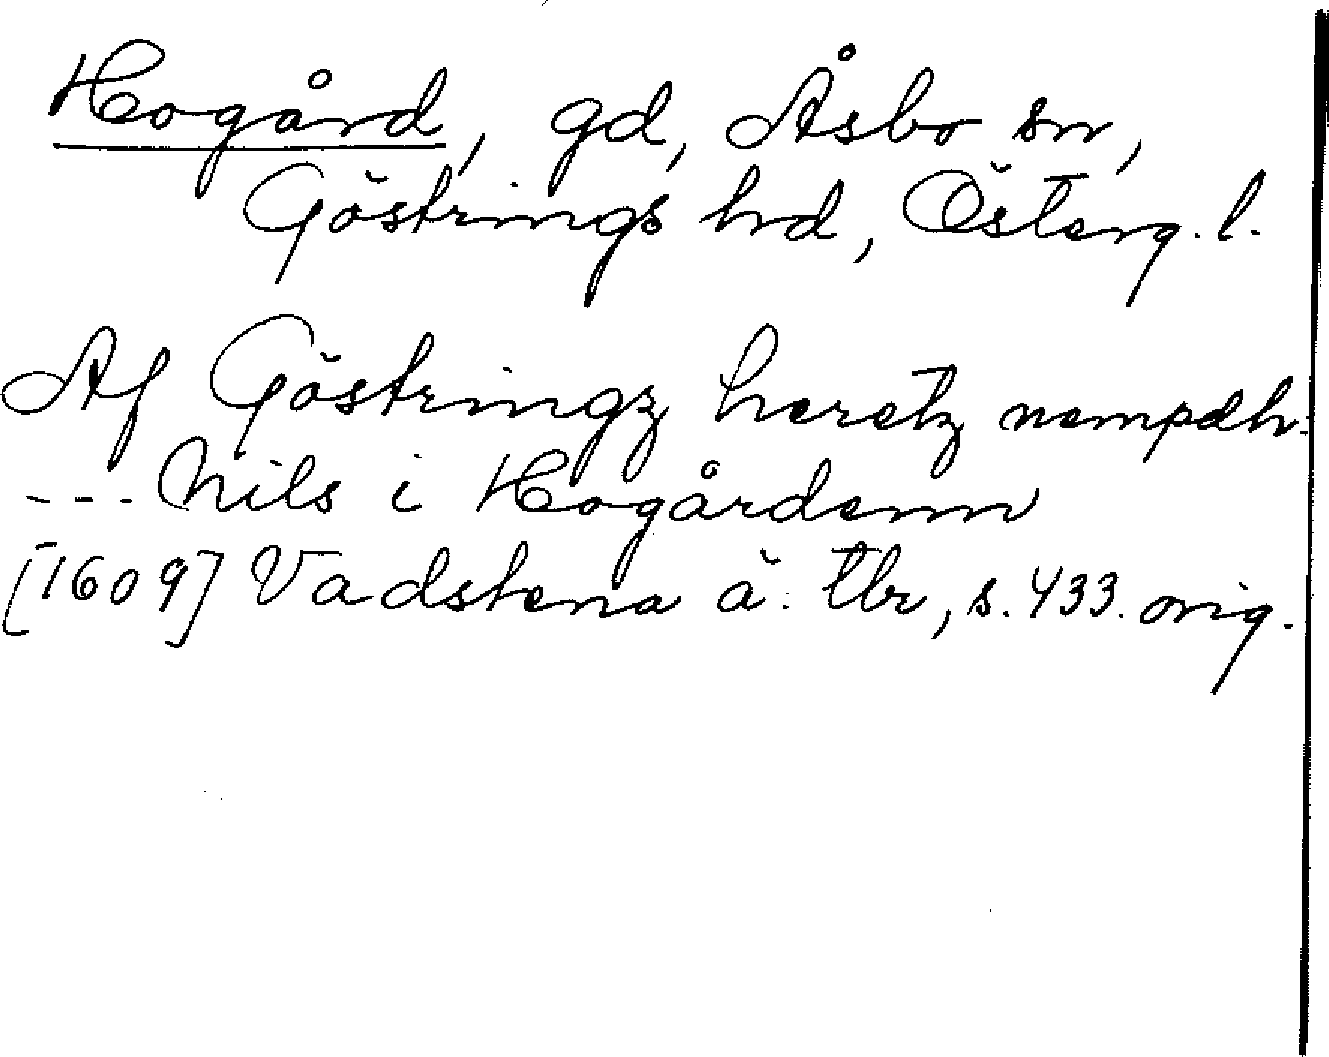 Hogård, gd, Åsbo sn,
Göstrings hrd, Österg. l.
Af Göstringz heretz nempdh.
--- Nils i Hogårdenn
[1609] Vadstena ä. tbr, s. 433. orig.